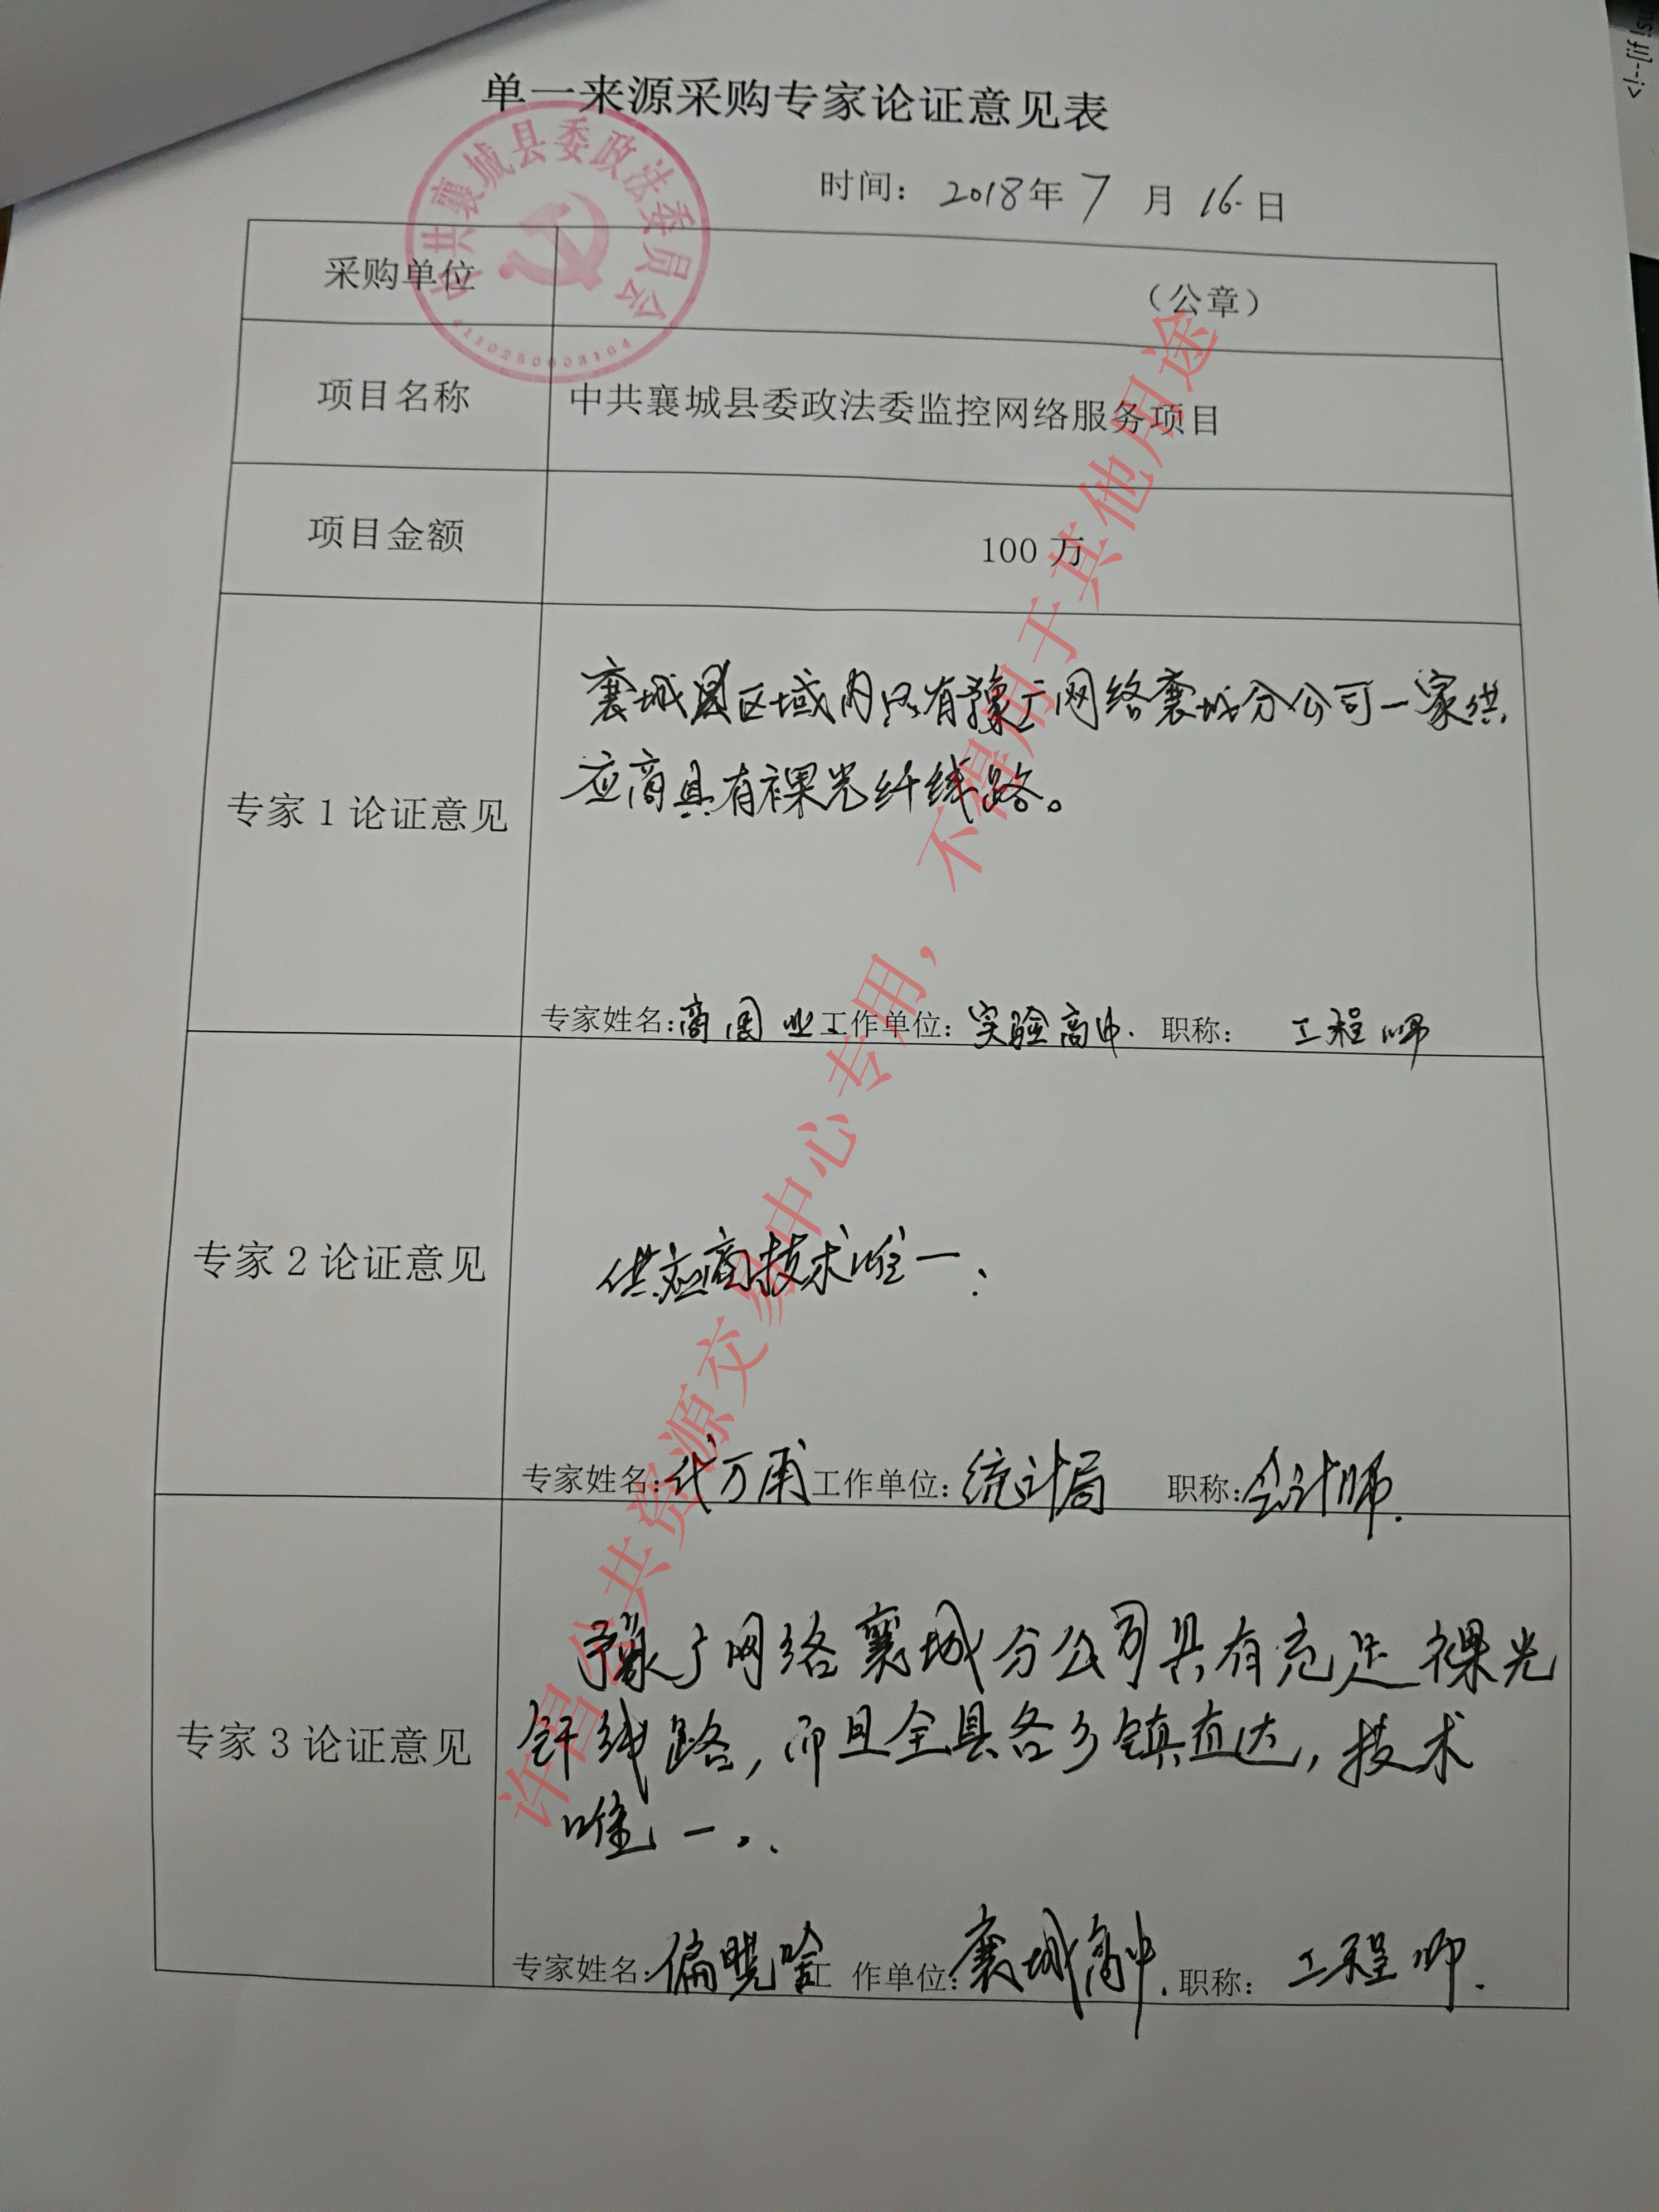 单一来源采购专家论证意见表
时间：2018年7月16日
中共襄城县委政法委员会
采购单位
（公章）
项目名称
中共襄城县委政法委监控网络服务项目
项目金额
100 万
专家 1 论证意见
襄城县区域内只有豫广网络襄城分公司一家供
应商具有裸光纤线路。
专家姓名：商国业 工作单位：实验高中. 职称： 工程师
专家 2 论证意见
供应商技术唯一.
专家姓名： 万甫 工作单位：统计局 职称：会计师.
专家 3 论证意见
豫广网络襄城分公司具有充足裸光
纤线路，而且全县各乡镇直达，技术
唯一。.
专家姓名： 晓 工作单位：襄城高中. 职称： 工程师.
许昌公共资源交易中心专用，不得用于其他用途